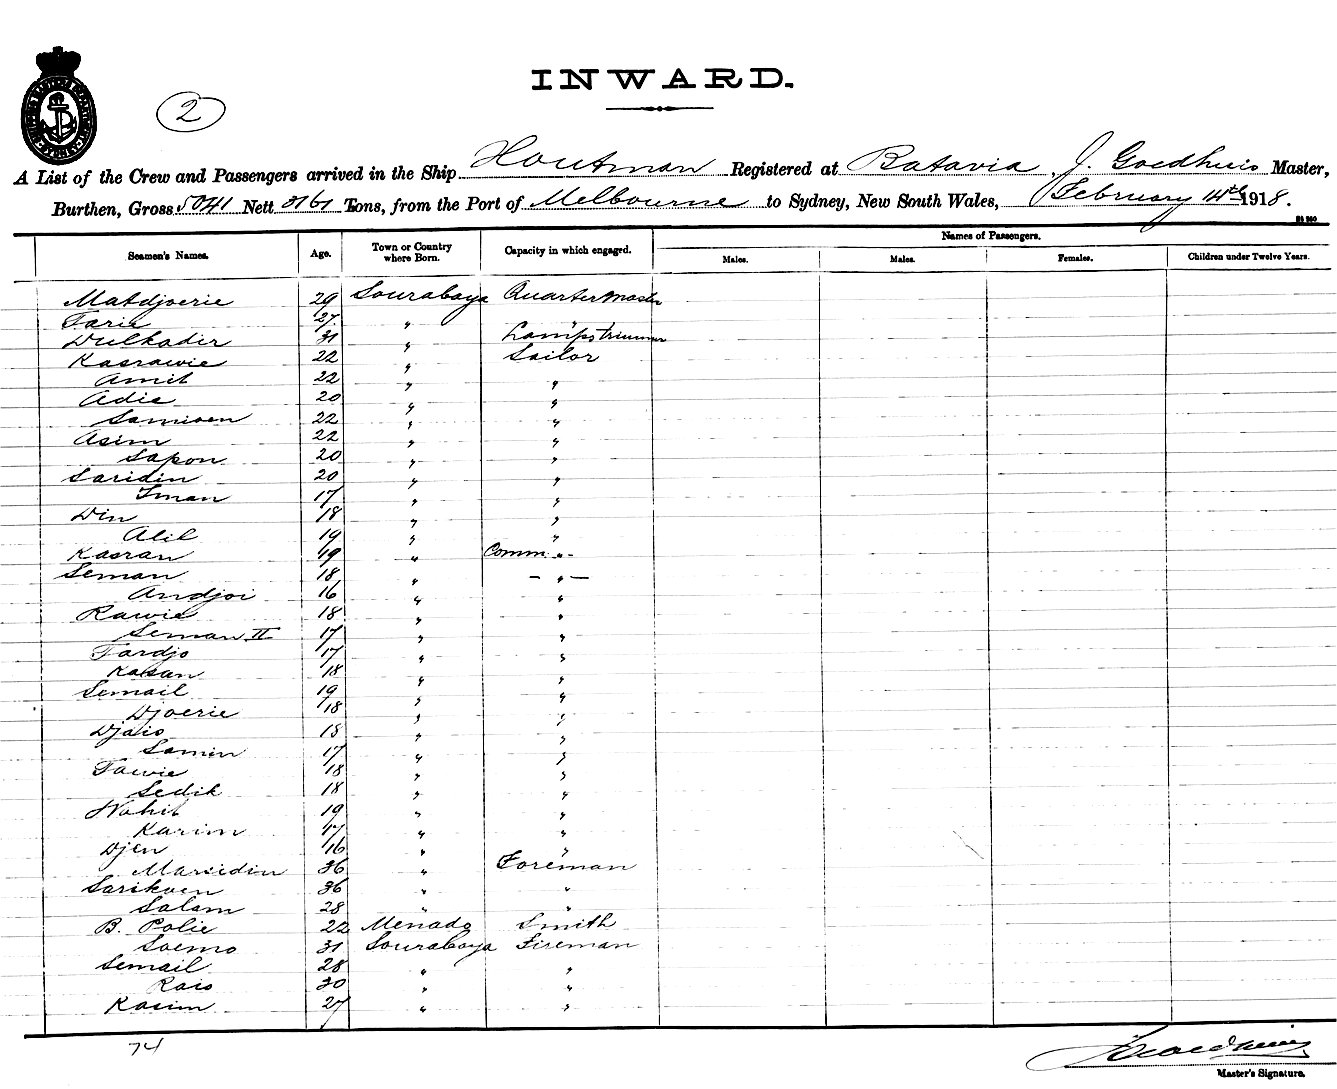 INWARD.
2
A List of the Crew and Passengers arrived in the Ship Houtman Registered at Batavia, J. Goedhuis Master,
Burthen, Gross 5041 Nett 3161 Tons, from the Port of Melbourne to Sydney, New South Wales, February 14th 1918.
Names of Passengers.
Seamen's Names. Age. Town or Country where Born. Capacity in which engaged. Males. Males. Females. Children under Twelve Years.
Matdjoerie 29 Sourabaya Quartermaster
Tarie 27 " "
Dulkadir 31 " Lampstrimmer
Kasrawie 22 " Sailor
Amit 22 " "
Adie 20 " "
Samioen 22 " "
Asim 22 " "
Sapon 20 " "
Saridin 20 " "
Iman 17 " "
Din 18 " "
Alil 19 " "
Kasran 19 " Comm. " -
Seman 18 " - " -
Andjoi 16 " "
Rawie 18 " "
Seman II 17 " "
Tardjo 17 " "
Kasan 18 " "
Semail 19 " "
Djoerie 18 " "
Djais 15 " "
Samin 17 " "
Tawie 18 " "
Sedik 18 " "
Wahit 19 " "
Karim 17 " "
Djen 16 " "
Marsidin 36 " Foreman
Sarikoen 36 " "
Salam 28 " "
B. Polie 22 Menado Smith
Soemo 31 Sourabaya Fireman
Semail 28 " "
Rais 30 " "
Kasim 27 " "
74
Master's Signature.